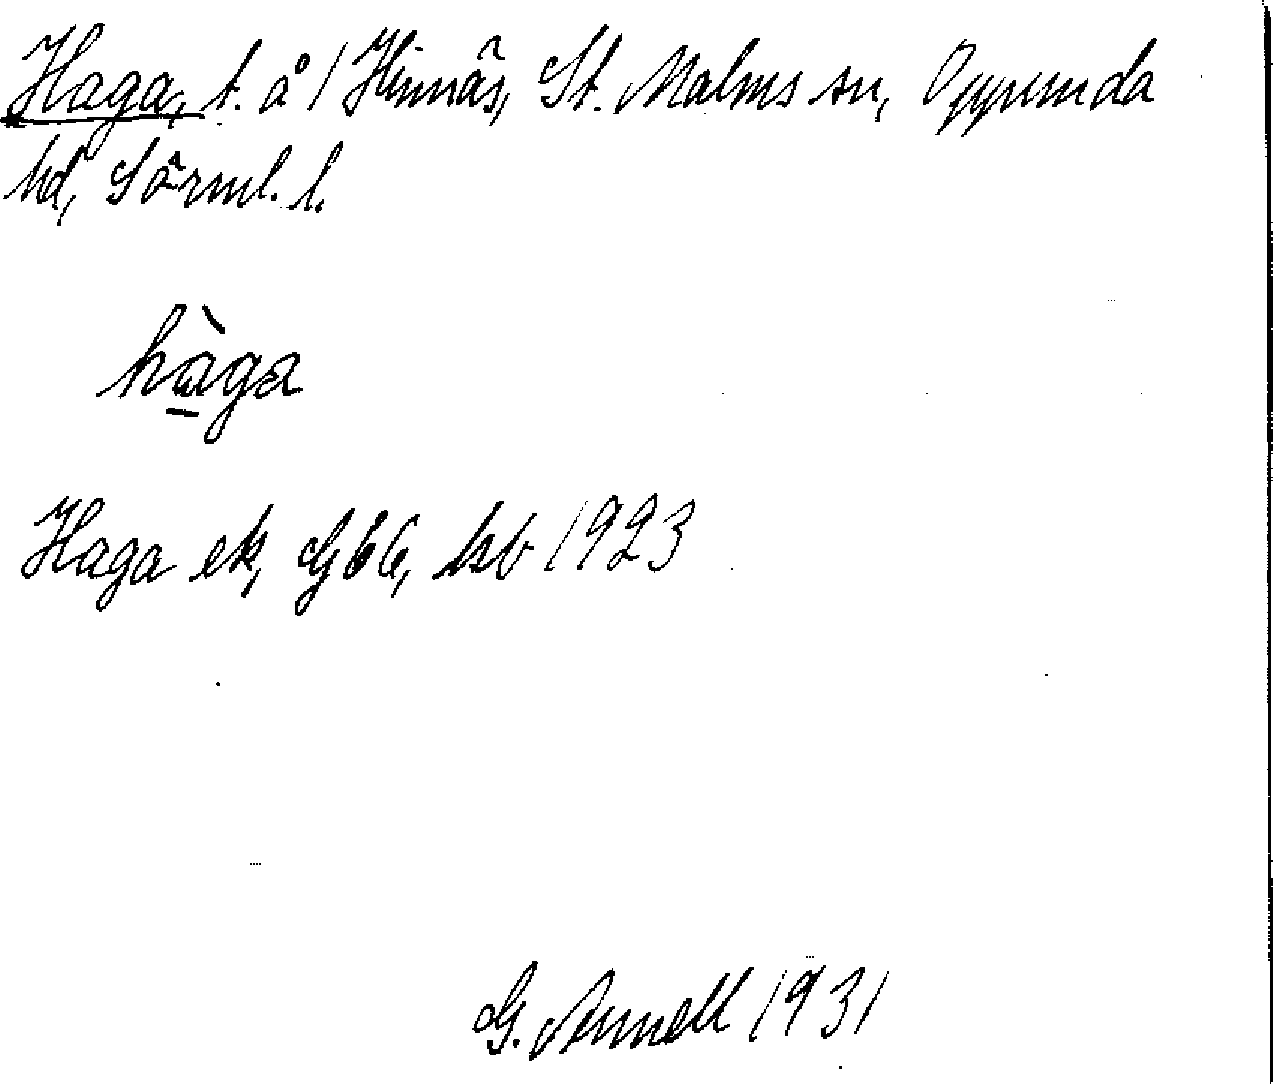 Haga, t. å 1 Hinnäs, St. Malms sn, Oppunda
hd, Sörml. l.
hàga
Haga ek, G66, hsb 1923
G. Annell 1931